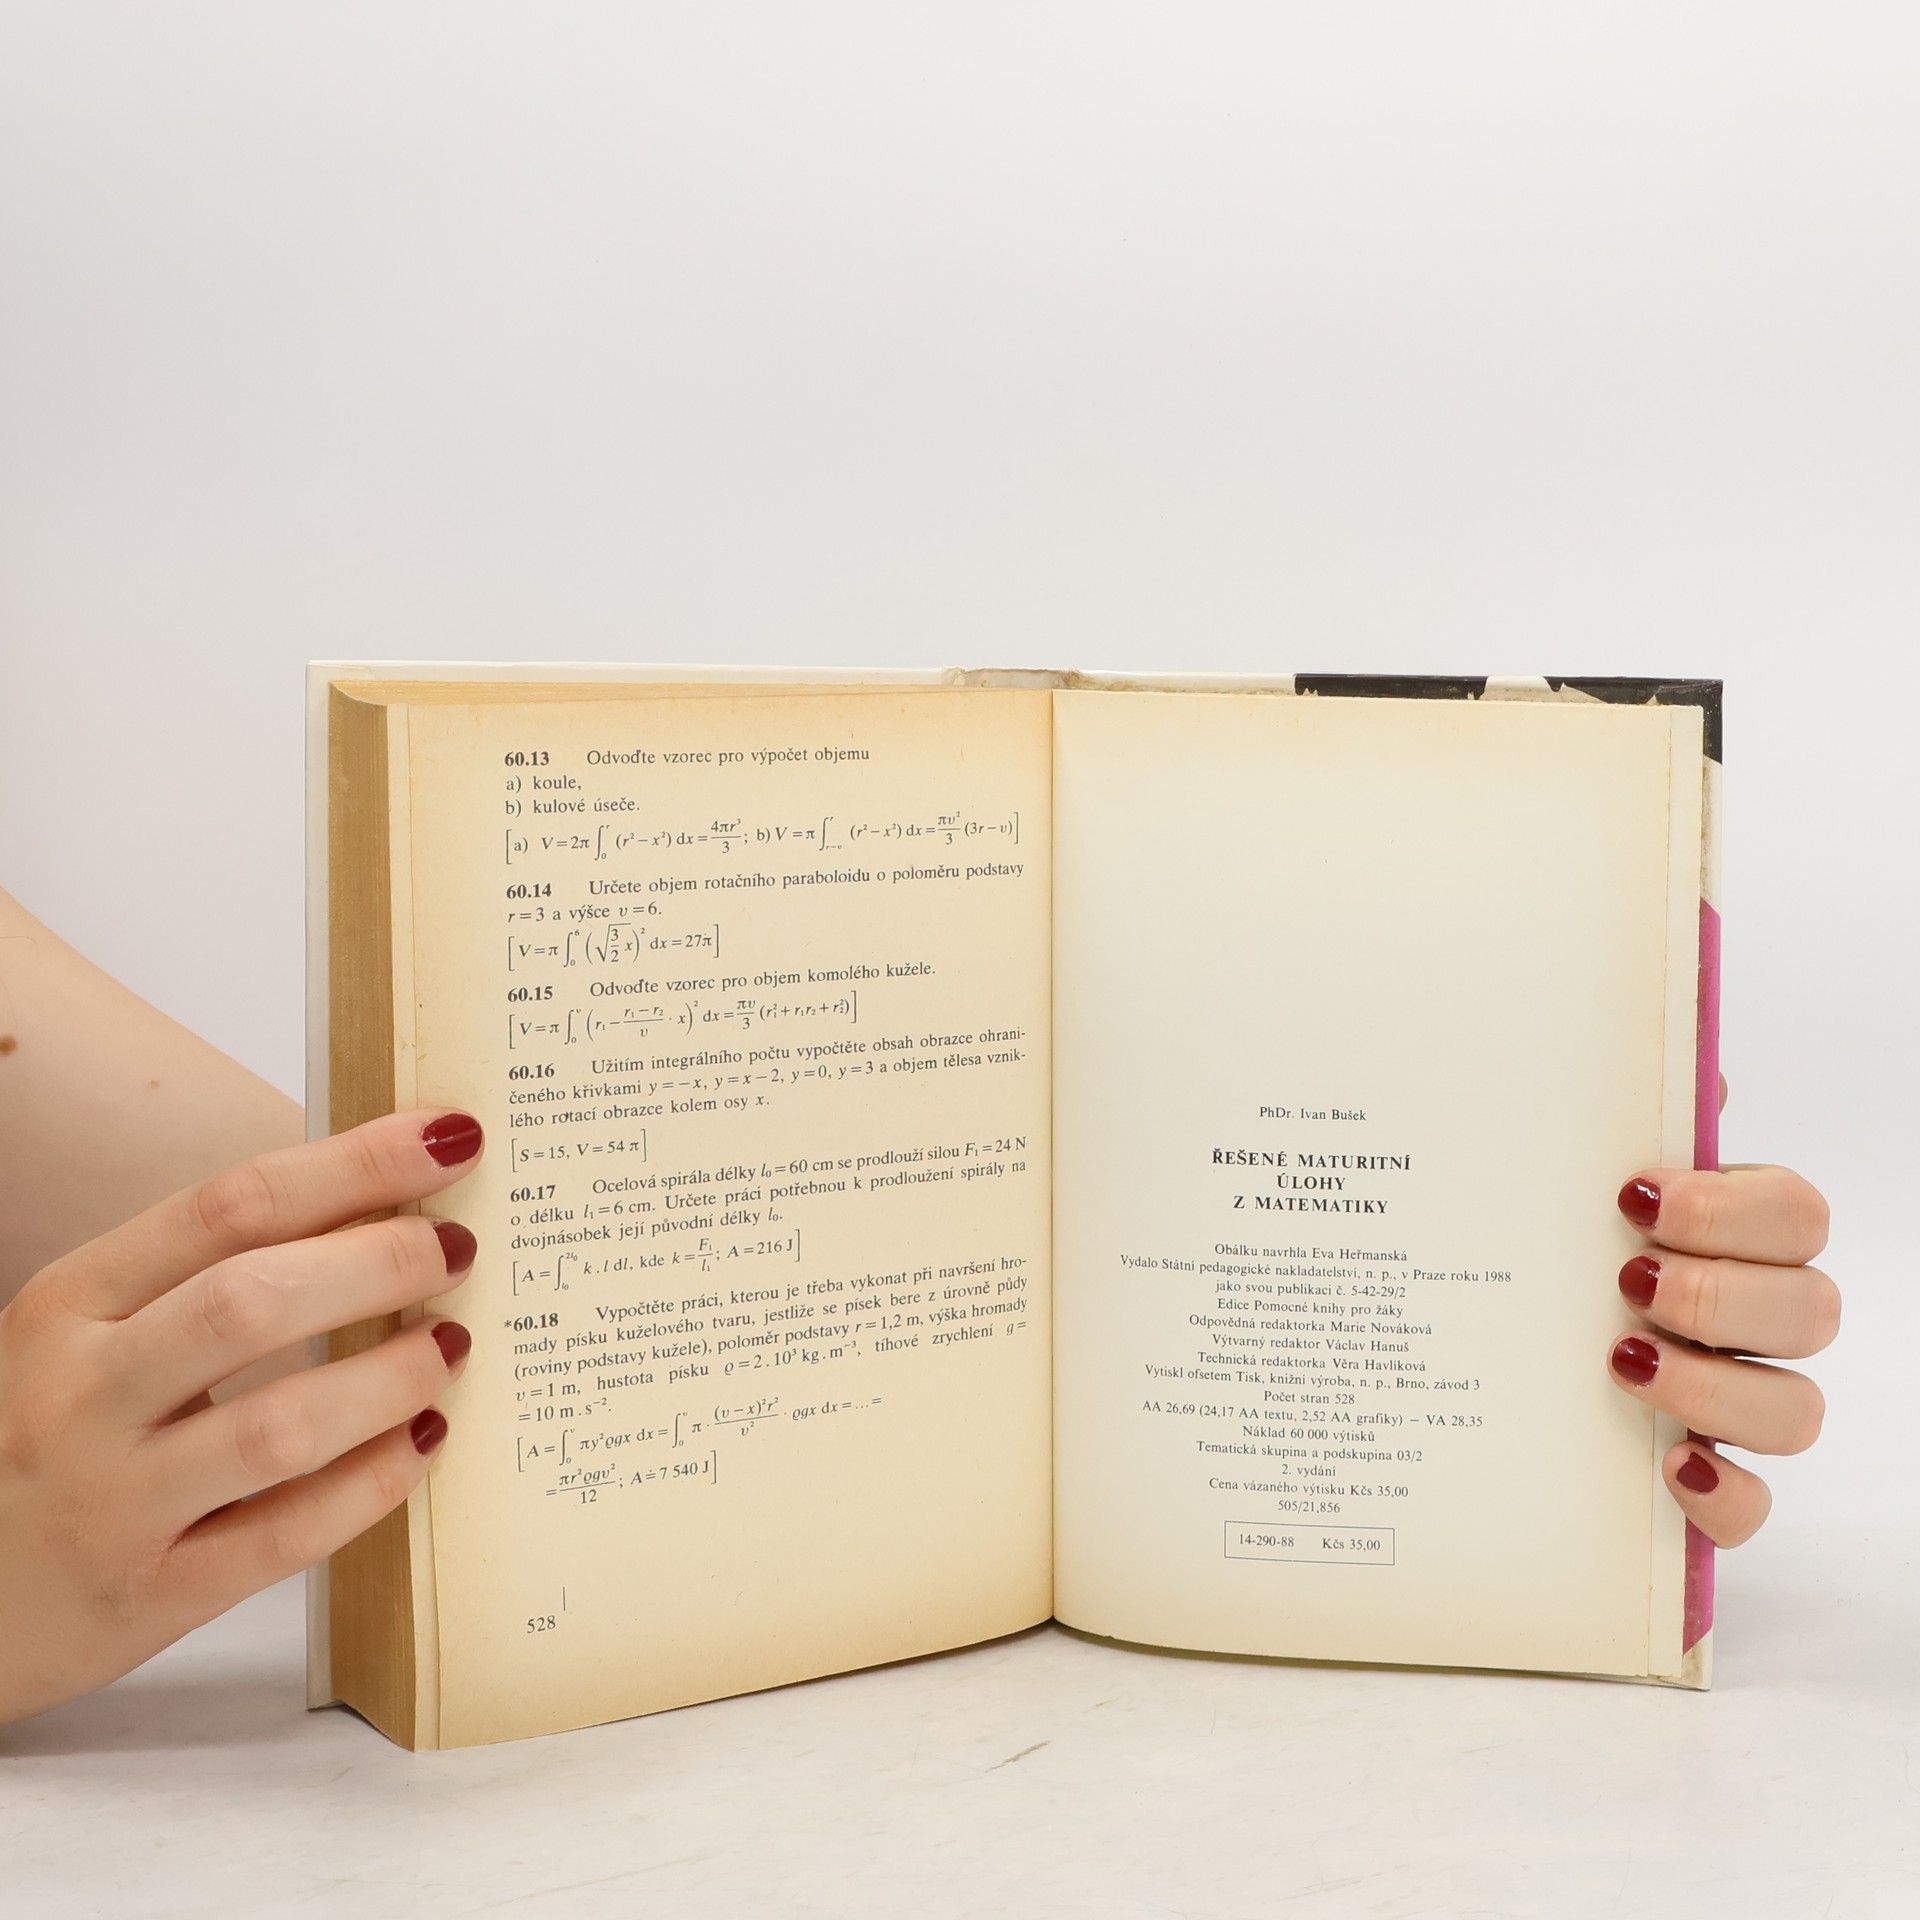 60.13 Odvoďte vzorec pro výpočet objemu
a) koule,
b) kulové úseče.
[a) V = 2π ∫₀ʳ (r² − x²) dx = 4πr³/3; b) V = π ∫ᵣ₋ᵥʳ (r² − x²) dx = πv²/3 (3r − v)]
60.14 Určete objem rotačního paraboloidu o poloměru podstavy
r = 3 a výšce v = 6.
[V = π ∫₀⁶ (√(3/2 x))² dx = 27π]
60.15 Odvoďte vzorec pro objem komolého kužele.
[V = π ∫₀ᵛ (r₁ − (r₁ − r₂)/v · x)² dx = πv/3 (r₁² + r₁r₂ + r₂²)]
60.16 Užitím integrálního počtu vypočtěte obsah obrazce ohrani-
čeného křivkami y = −x, y = x − 2, y = 0, y = 3 a objem tělesa vznik-
lého rotací obrazce kolem osy x.
[S = 15, V = 54 π]
60.17 Ocelová spirála délky l₀ = 60 cm se prodlouží silou F₁ = 24 N
o délku l₁ = 6 cm. Určete práci potřebnou k prodloužení spirály na
dvojnásobek její původní délky l₀.
[A = ∫ₗ₀²ˡ⁰ k . l dl, kde k = F₁/l₁; A = 216 J]
*60.18 Vypočtěte práci, kterou je třeba vykonat při navršení hro-
mady písku kuželového tvaru, jestliže se písek bere z úrovně půdy
(roviny podstavy kužele), poloměr podstavy r = 1,2 m, výška hromady
v = 1 m, hustota písku ϱ = 2 . 10³ kg . m⁻³, tíhové zrychlení g =
= 10 m . s⁻².
[A = ∫₀ᵛ πy²ϱgx dx = ∫₀ᵛ π · (v − x)²r²/v² · ϱgx dx = ... =
= πr²ϱgv²/12; A ≐ 7 540 J]
528
PhDr. Ivan Bušek
ŘEŠENÉ MATURITNÍ
ÚLOHY
Z MATEMATIKY
Obálku navrhla Eva Heřmanská
Vydalo Státní pedagogické nakladatelství, n. p., v Praze roku 1988
jako svou publikaci č. 5-42-29/2
Edice Pomocné knihy pro žáky
Odpovědná redaktorka Marie Nováková
Výtvarný redaktor Václav Hanuš
Technická redaktorka Věra Havlíková
Vytiskl ofsetem Tisk, knižní výroba, n. p., Brno, závod 3
Počet stran 528
AA 26,69 (24,17 AA textu, 2,52 AA grafiky) — VA 28,35
Náklad 60 000 výtisků
Tematická skupina a podskupina 03/2
2. vydání
Cena vázaného výtisku Kčs 35,00
505/21,856
14-290-88 Kčs 35,00